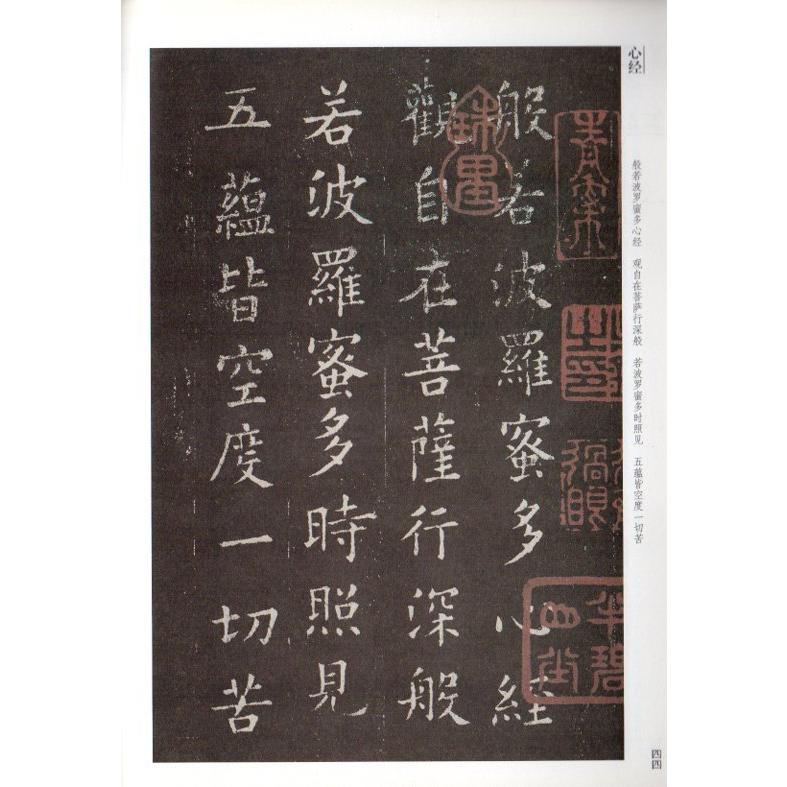 心经
般若波罗蜜多心经　观自在菩萨行深般　若波罗蜜多时照见　五蕴皆空度一切苦
般若波羅蜜多心經
觀自在菩薩行深般
若波羅蜜多時照見
五蘊皆空度一切苦
四四